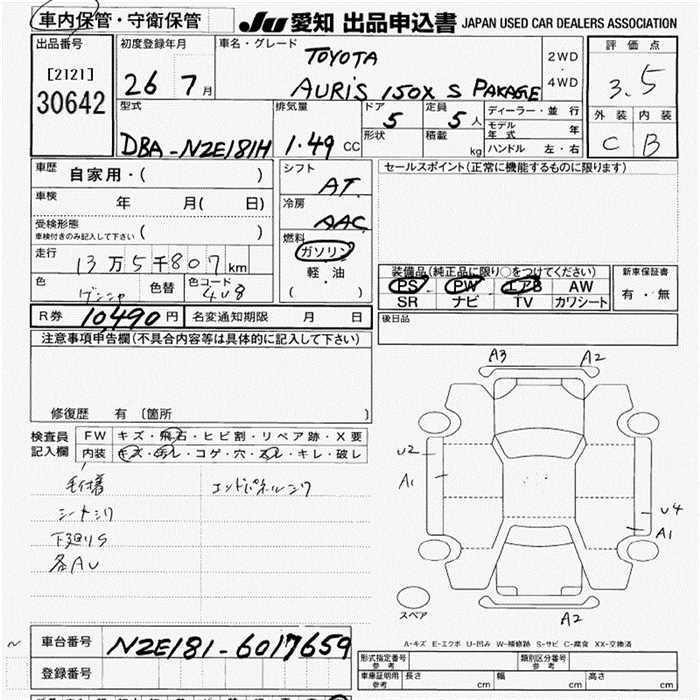 車内保管・守衛保管 JU 愛知 出品申込書 JAPAN USED CAR DEALERS ASSOCIATION
出品番号 [2121] 30642
初度登録年月 26 7月
車名・グレード TOYOTA AURIS 150X S PAKAGE
2WD・4WD
評価点 3.5
外装 内装
C B
型式 DBA-NZE181H
排気量 1.49 CC
ドア 5 定員 5人
形状 積載 kg
ディーラー・並行
モデル年式 年
ハンドル 左・右
車歴 自家用・( )
車検 年 月( 日)
受検形態 車検付きのみ記入して下さい ( )
走行 13万5千807km
色 色替 色コード 4U8
シフト AT
冷房 AAC
燃料 ガソリン
軽・油
( )
セールスポイント(正常に機能するものに限ります)
装備品(純正品に限り○をつけてください)
PS PW エアB AW
SR ナビ TV カワシート
新車保証書
有・無
R券 10,490円 名変通知期限 月 日
後日品
注意事項申告欄(不具合内容等は具体的に記入して下さい)
修復歴 有〔箇所 〕
検査員記入欄
FW キズ・飛石・ヒビ割・リペア跡・X要
内装 キズ・汚レ・コゲ・穴・スレ・キレ・破レ
シートシワ
下廻りS
各AU
A3 A2
U2
A1
U4
A1
A2
スペア
A-キズ E-エクボ U-凹み W-補修跡 S-サビ C-腐食 XX-交換済
車台番号 NZE181-6017659
登録番号
形式指定番号 参考 類別区分番号 参考
車庫証明用 参考 長さ cm 幅 cm 高さ cm